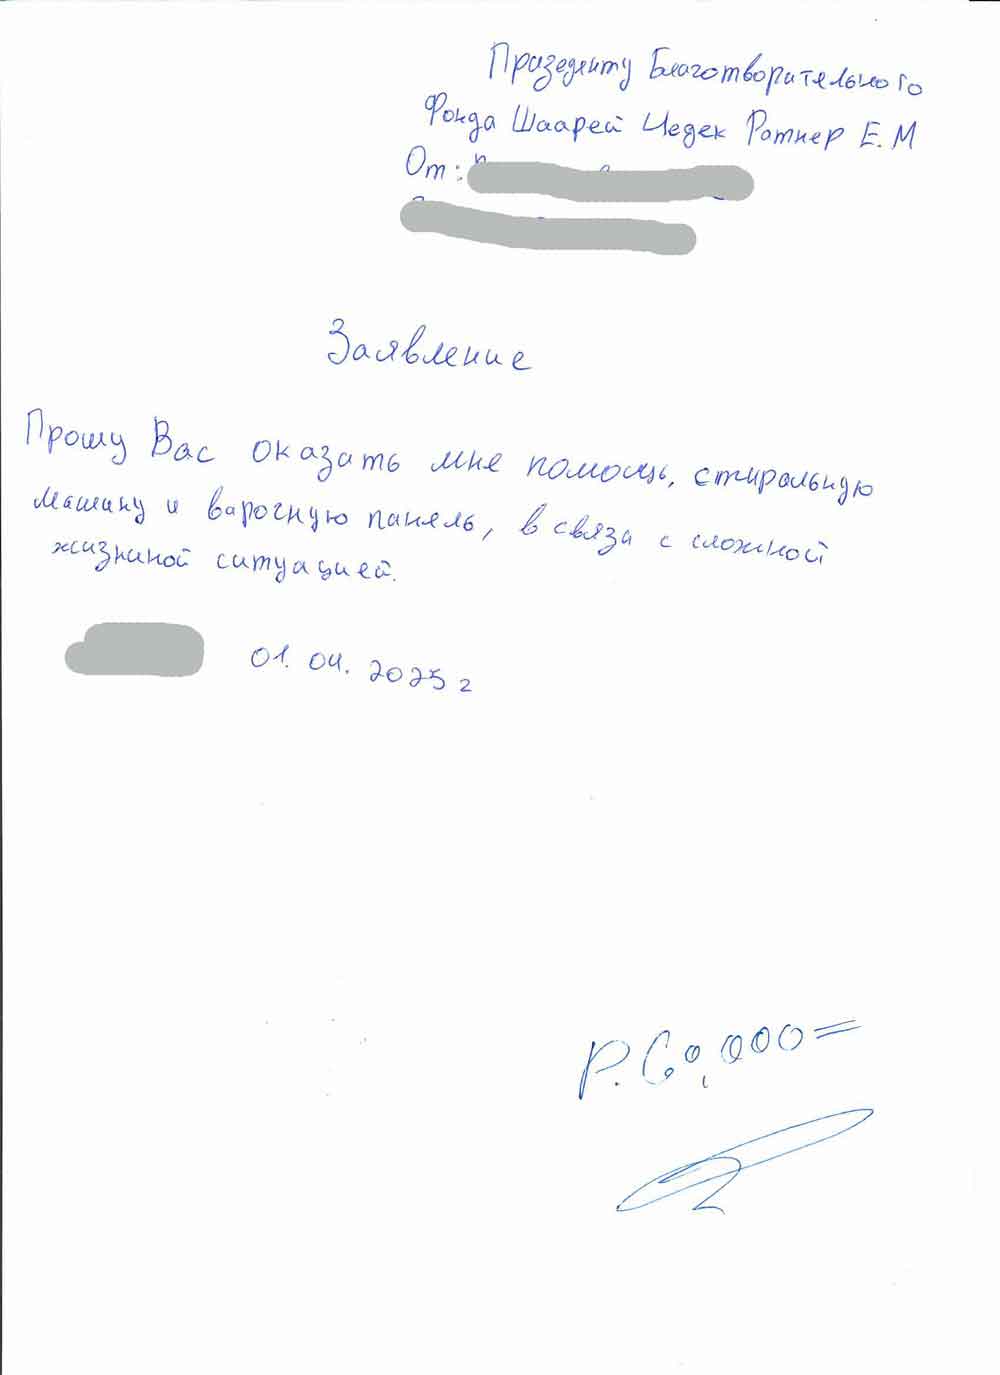 Празеденту Благотворительного
Фонда Шаарей Цедек Ротнер Е.М
От:
Заявление
Прошу Вас оказать мне помощь, стиральную
машину и варочную панель, в связа с сложной
жизниной ситуацией.
01.04.2025 г
Р. 60,000=